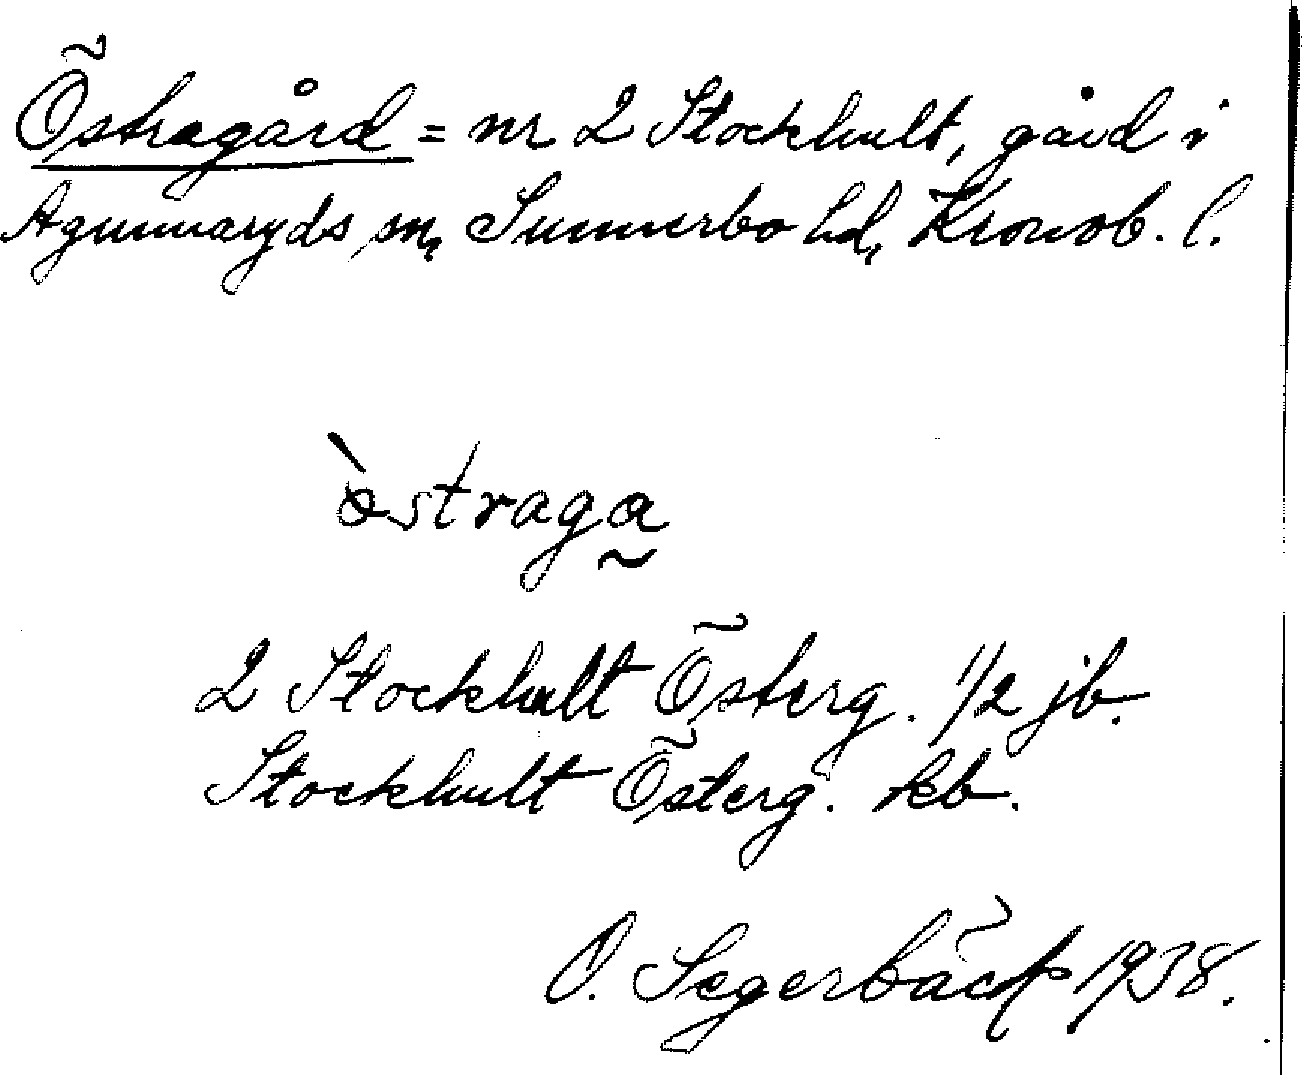 Östragård = nr 2 Stockhult, gård i
Agunnaryds sn, Sunnerbo hd, Kronob. l.
òstraga̰
2 Stockhult Österg. 1/2 jb.
Stockhult Österg. kb.
O. Segerbäck 1938.